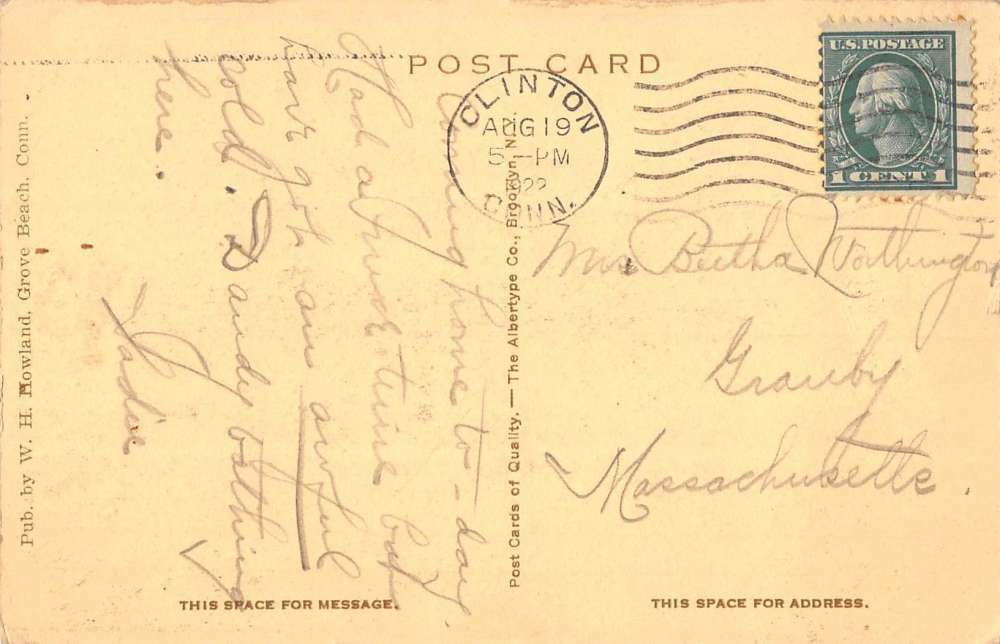 POST CARD
CLINTON
AUG 19
5-PM
1922
CONN.
U.S. POSTAGE
1 CENT 1
Coming home to-day.
Had a fine time but
have got an awful
cold. Dandy bathing
here.
Sadie
Mrs Bertha Worthington
Granby
Massachusetts.
Pub. by W. H. Howland, Grove Beach, Conn.
Post Cards of Quality. — The Albertype Co., Brooklyn, N.Y.
THIS SPACE FOR MESSAGE.
THIS SPACE FOR ADDRESS.